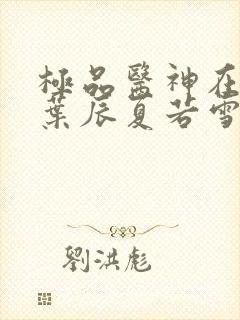 極品醫神在
葉辰夏若雪
劉洪彪